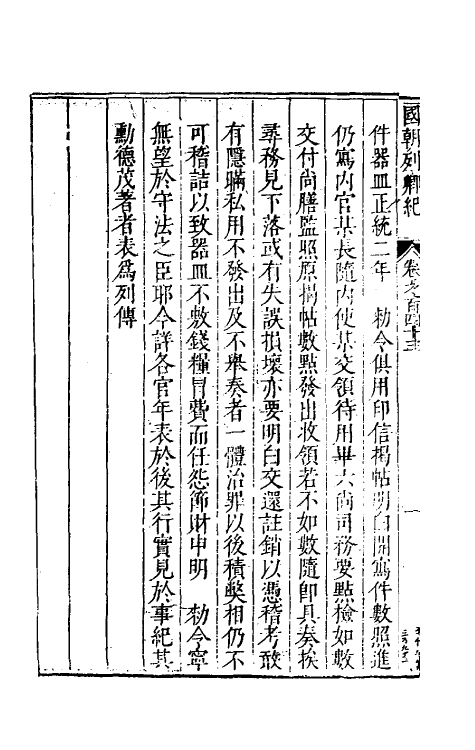 國朝列卿紀
卷之百四十三
一
件器皿正統二年　勑令俱用印信揭帖明白開寫件數照進
仍寫內官某長隨內使某交領待用畢六尚司務要點檢如數
交付尚膳監照原揭帖數點發出收領若不如數隨卽具奏挨
尋務見下落或有失誤損壞亦要明白交還註銷以憑稽考敢
有隱瞞私用不發出及不舉奏者一體治罪以後積弊相仍不
可稽詰以致器皿不敷錢糧冒費而任怨節財申明　勑令寧
無望於守法之臣耶今詳各官年表於後其行實見於事紀其
勳德茂著者表爲列傳